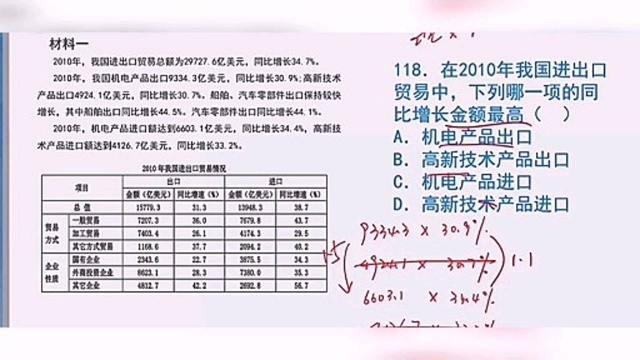 材料一
2010年，我国进出口贸易总额为29727.6亿美元，同比增长34.7%。
2010年，我国机电产品出口9334.3亿美元，同比增长30.9%；高新技术
产品出口4924.1亿美元，同比增长30.7%。船舶、汽车零部件出口保持较快
增长，其中船舶出口同比增长44.5%。汽车零部件出口同比增长44.1%。
2010年，机电产品进口额达到6603.1亿美元，同比增长34.4%，高新技
术产品进口额达到4126.7亿美元，同比增长33.2%。
2010年我国进出口贸易情况
项目 出口 进口
金额（亿美元） 同比增速（%） 金额（亿美元） 同比增速（%）
总 值 15779.3 31.3 13948.3 38.7
贸易方式 一般贸易 7207.3 36.0 7679.8 43.7
加工贸易 7403.4 26.1 4174.3 29.5
其它方式贸易 1168.6 37.7 2094.2 40.2
企业性质 国有企业 2343.6 22.7 3875.5 34.3
外商投资企业 8623.1 28.3 7380.0 35.3
其它企业 4812.7 42.2 2692.8 56.7
118. 在2010年我国进出口
贸易中，下列哪一项的同
比增长金额最高（ ）
A. 机电产品出口
B. 高新技术产品出口
C. 机电产品进口
D. 高新技术产品进口
9334.3 × 30.9%
4924.1 × 30.7%
1.5
1.1
6603.1 × 34.4%